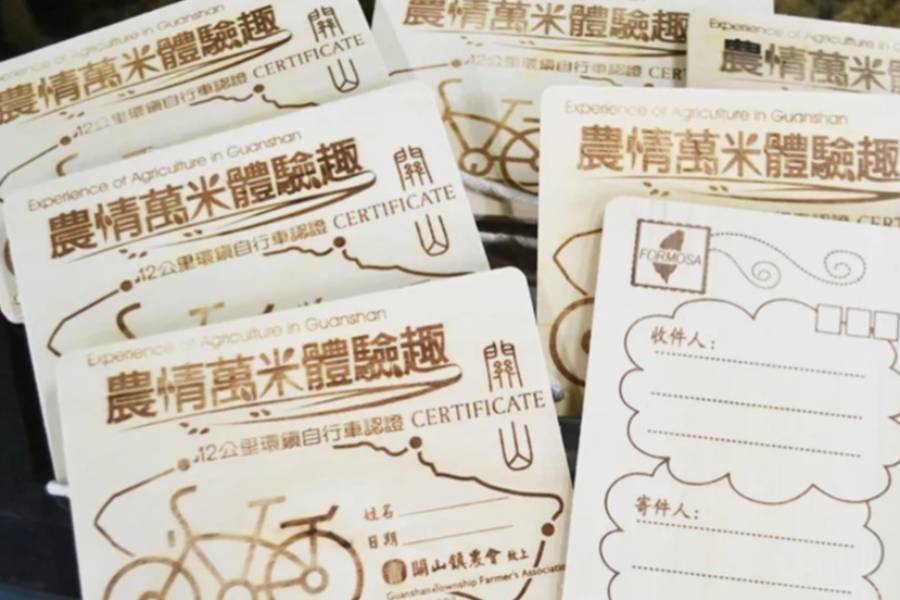 Experience of Agriculture in Guanshan
農情萬米體驗趣
12公里環鎮自行車認證 CERTIFICATE
關山
農情萬米體驗趣
12公里環鎮自行車認證
農情萬米
Experience of Agriculture in Guanshan
農情萬米體驗趣
12公里環鎮自行車認證 CERTIFICATE
關山
Experience of Agriculture in Guanshan
農情萬米體驗趣
FORMOSA
收件人：
寄件人：
Experience of Agriculture in Guanshan
農情萬米體驗趣
12公里環鎮自行車認證 CERTIFICATE
關山
姓名
日期
關山鎮農會 敬上
Guanshan Township Farmer's Association